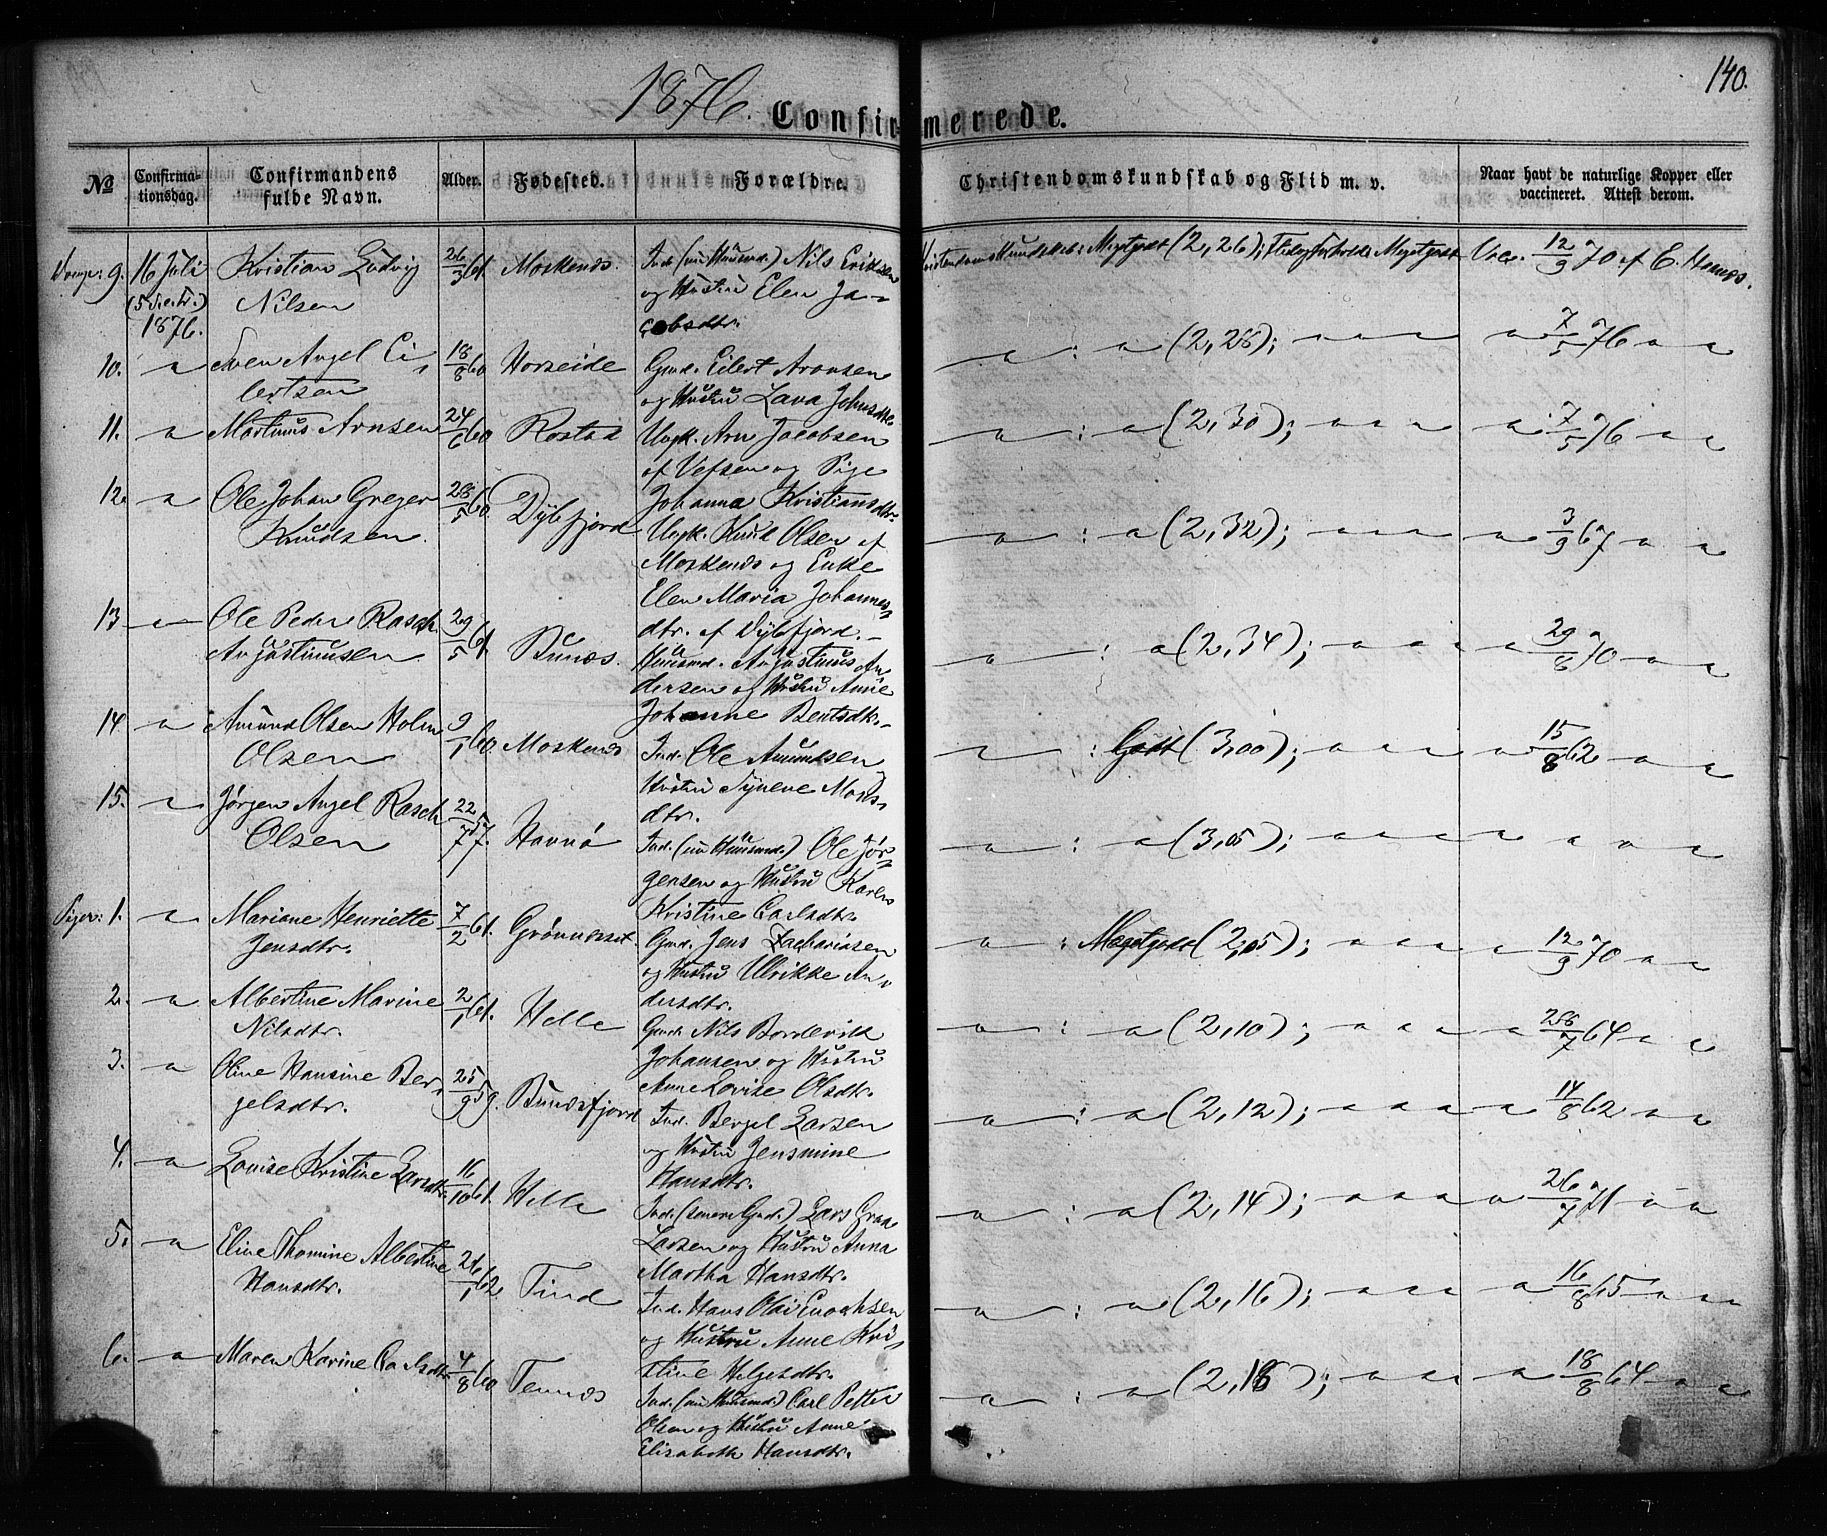 1876.
140.
Confirmerede.
No
Confirmationsdag.
Confirmandens fulde Navn.
Alder.
Fødested.
Forældre.
Christendomskundskab og Flid m. v.
Naar havt de naturlige Kopper eller vaccineret. Attest derom.
Drenge: 9. 16 Juli (5 S.e.Tr.) 1876. Kristian Ludvig Nilsen 26/3 61. Moskenæs. Ind. (nu Huusmd.) Nils Eriksen og Hustru Elen Jacobsdtr. Kristendomskundskab: Megetgodt (2,26); Flid og Forhold: Megetgodt Vacc. 12/9 70 af E. Hornæs.
10. " Sven Angel Eilertsen 18/8 60 Horseide Gmd. Eilert Aronsen og Hustru Lava Johnsdtr. " : " (2,28); " " " " 7/5 76 " "
11. " Martinus Arnsen 24/6 60 Rostad Ungk. Arn Jacobsen af Vefsen og Pige Johanna Kristiansdtr. " : " (2,30); " " " " 7/5 76 " "
12. " Ole Johan Greger Knudsen. 28/5 60. Dybfjord Ungk. Knud Olsen af Moskenæs og Enke Elen Maria Johannesdtr. af Dybfjord. " : " (2,32); " " " " 3/9 67 " "
13 " Ole Peder Rasch Augustinusen 29/5 61. Bunæs. Huusmd. Augustinus Andersen og Hustru Anne Johanne Bentsdtr. " : " (2,34); " " " " 29/8 70 " "
14. " Amund Olsen Holm Olsen 9/1 60. Moskenæs Ind. Ole Amundsen Hustru Syneve Monsdtr. " : Godt (3,00); " " " " 15/8 62 " "
15. " Jørgen Angel Rasch Olsen 22/7 57. Havnø Ind. (nu Huusmd.) Ole Jørgensen og Hustru Karen Kristine Carlsdtr. " : " (3,05); " " " " " " "
Piger: 1. " Mariane Henriette Jensdtr. 7/2 61. Grønnæset. Gmd. Jens Zachariasen og Hustru Ulrikke Andersdtr. " : Megetgodt (2,05); " " " " 12/9 70 " "
2. " Albertine Marine Nilsdtr. 2/1 61. Helle Gmd. Nils Bordevik Johansen og Hustru Anne Lovise Olsdtr. " : " (2,10); " " " " 28/7 64 " "
3. " Oline Hansine Bergelsdtr. 25/9 59. Bunæsfjord Ind. Bergel Larsen og Hustru Jensmine Hansdtr. " : " (2,12); " " " " 14/8 62 " "
4. " Lovise Kristine Larsdtr. 16/10 61. Helle Ind. (senere Gmd.) Lars Graa Larsen og Hustru Anna Martha Hansdtr. " : " (2,14); " " " " 26/7 71 " "
5. " Eline Thomine Albertine Hansdtr. 26/1 62 Tind Ind. Hans Olai Enochsen og Hustru Anne Kristine Helgesdtr. " : " (2,16); " " " " 16/8 65 " "
6. " Maren Karine Carlsdtr. 4/8 60 Tennes Ind. (nu Huusmd.) Carl Petter Olsen og Hustru Anne Elisabeth Hansdtr. " : " (2,18); " " " " 18/8 64 " "